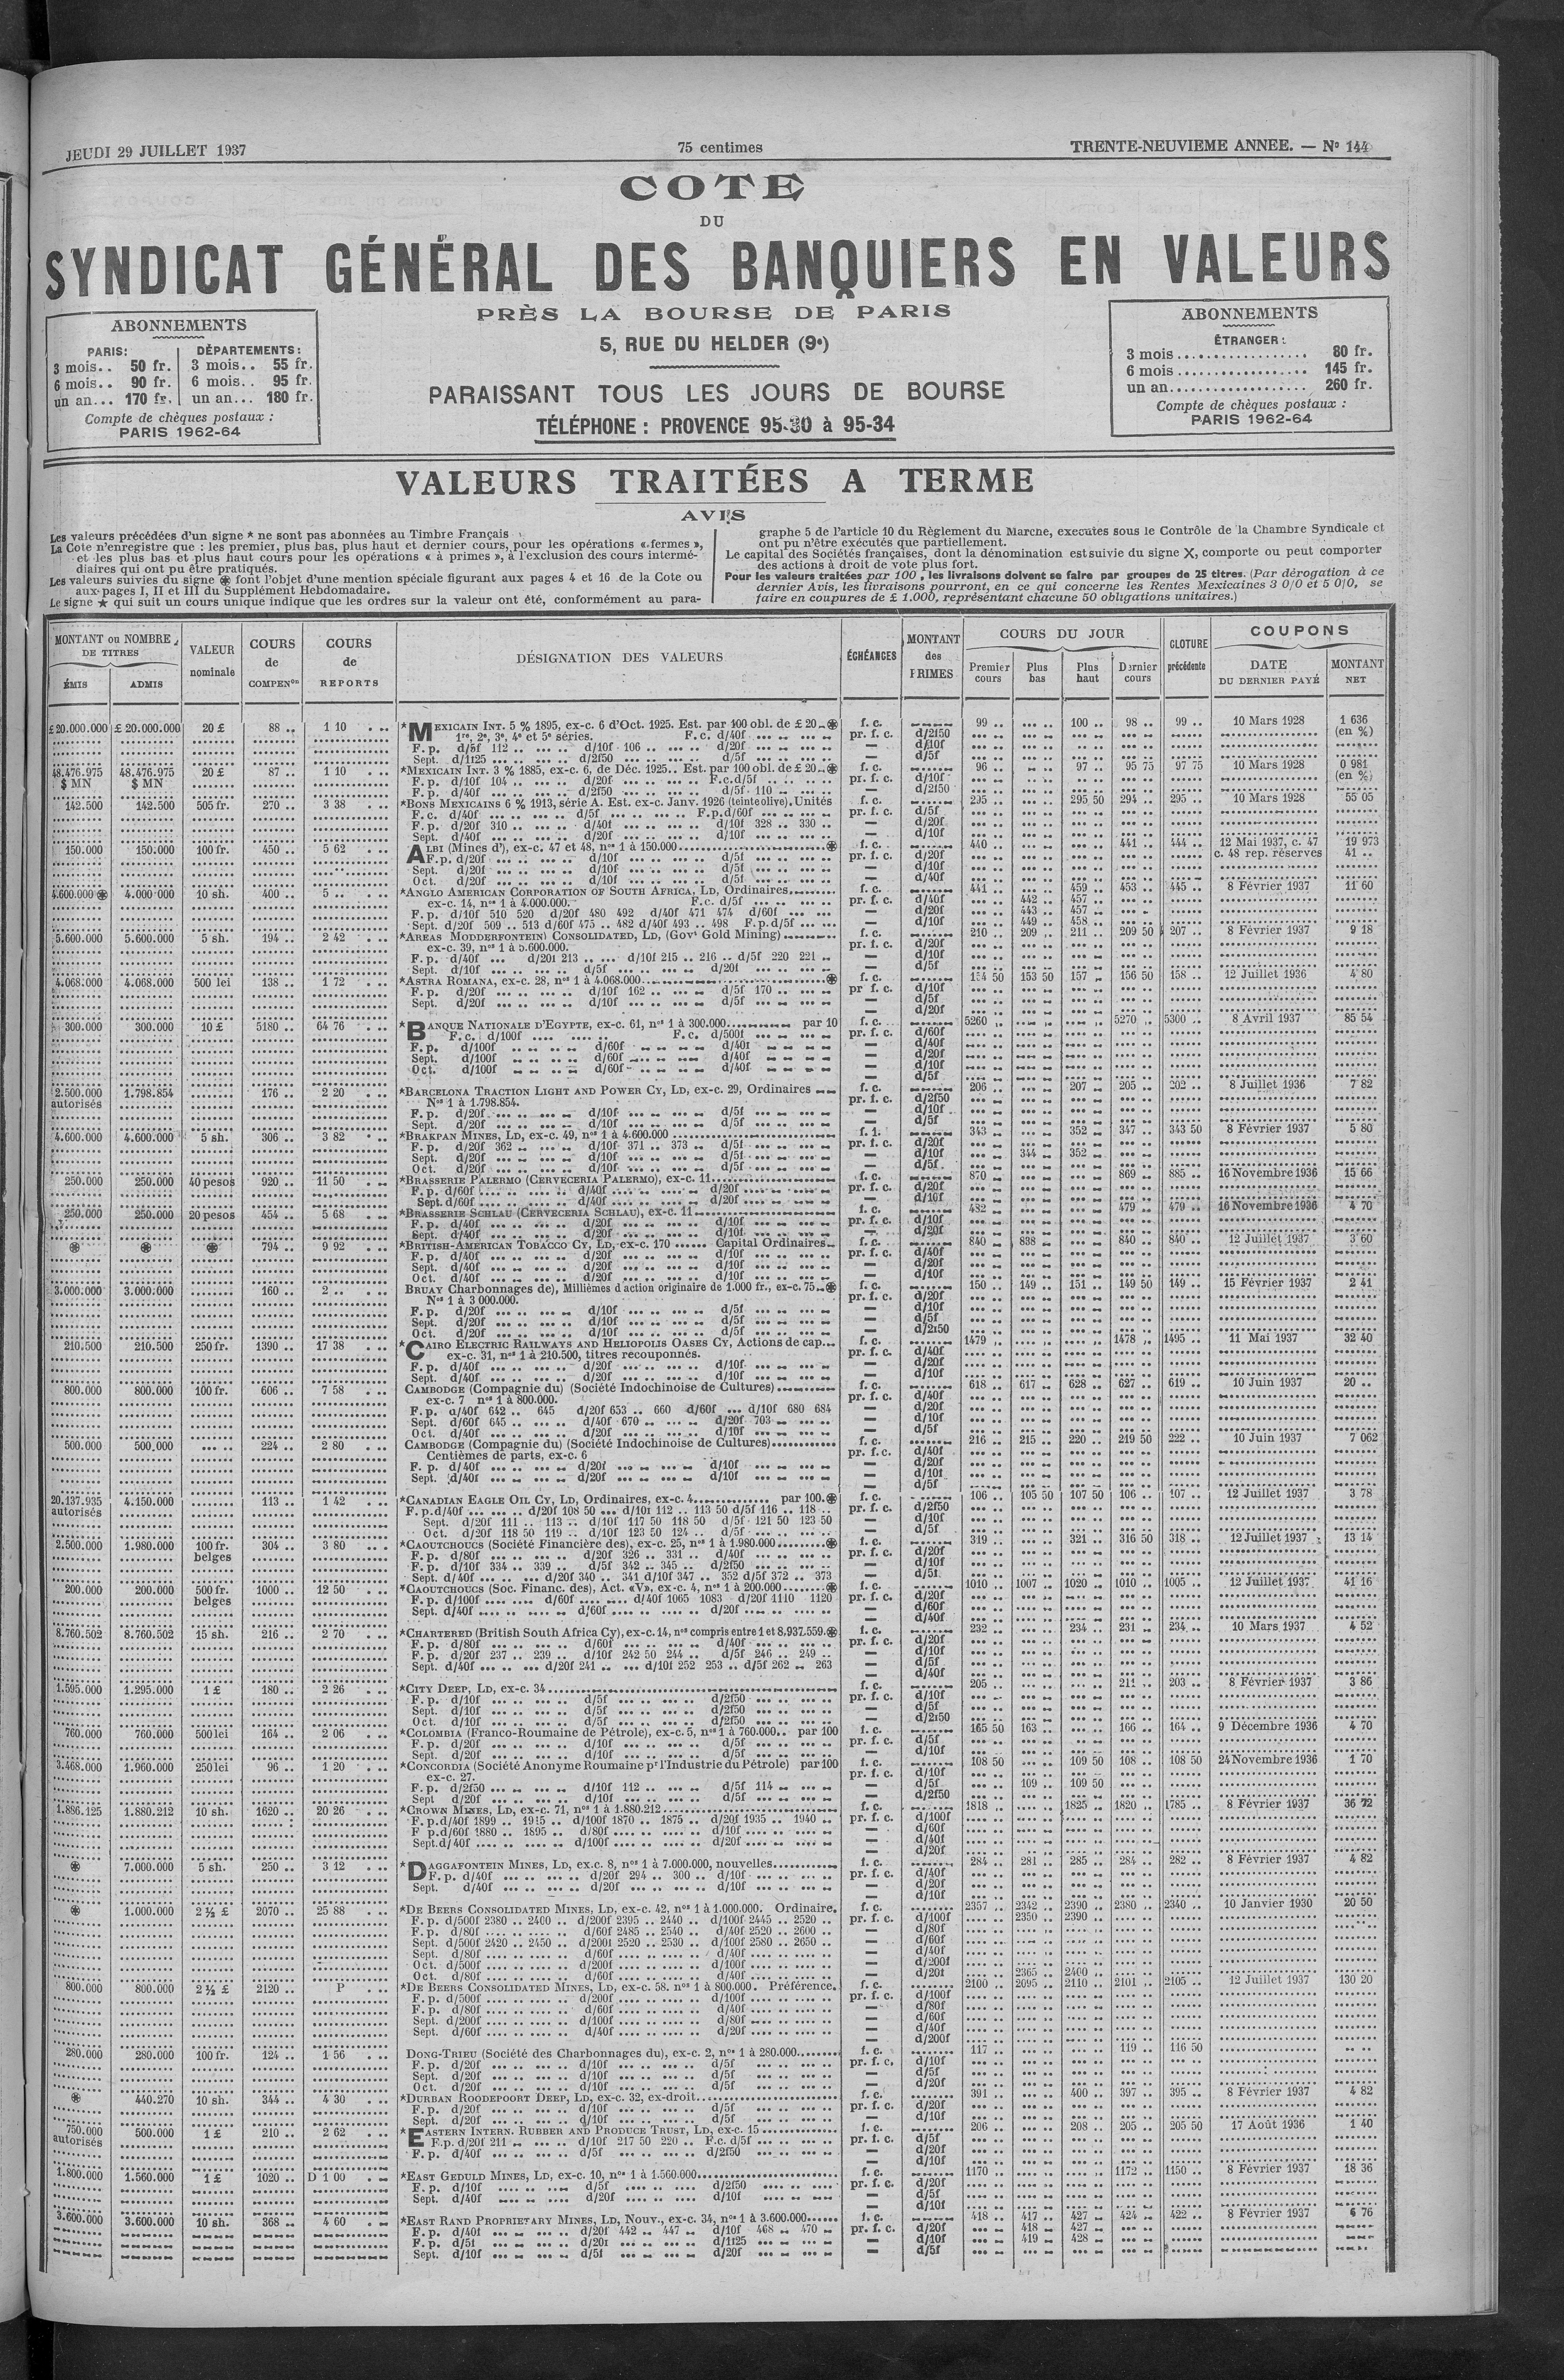 JEUDI 29 JUILLET 1937
75 centimes
TRENTE-NEUVIEME ANNEE. — Nº 144
COTE
DU
SYNDICAT GÉNÉRAL DES BANQUIERS EN VALEURS
PRÈS LA BOURSE DE PARIS
5, RUE DU HELDER (9e)
PARAISSANT TOUS LES JOURS DE BOURSE
TÉLÉPHONE : PROVENCE 95-30 à 95-34
ABONNEMENTS
PARIS: DÉPARTEMENTS:
3 mois.. 50 fr. 3 mois.. 55 fr.
6 mois.. 90 fr. 6 mois.. 95 fr.
un an... 170 fr. un an... 180 fr.
Compte de chèques postaux :
PARIS 1962-64
ABONNEMENTS
ÉTRANGER :
3 mois .................. 80 fr.
6 mois .................. 145 fr.
un an.................... 260 fr.
Compte de chèques postaux :
PARIS 1962-64
VALEURS TRAITÉES A TERME
AVIS
Les valeurs précédées d'un signe * ne sont pas abonnées au Timbre Français
La Cote n'enregistre que : les premier, plus bas, plus haut et dernier cours, pour les opérations « fermes »,
et les plus bas et plus haut cours pour les opérations « à primes », à l'exclusion des cours intermé-
diaires qui ont pu être pratiqués.
Les valeurs suivies du signe ⊛ font l'objet d'une mention spéciale figurant aux pages 4 et 16 de la Cote ou
aux pages I, II et III du Supplément Hebdomadaire.
Le signe ★ qui suit un cours unique indique que les ordres sur la valeur ont été, conformément au para-
graphe 5 de l'article 10 du Règlement du Marche, executes sous le Contrôle de la Chambre Syndicale et
ont pu n'être exécutés que partiellement.
Le capital des Sociétés françaises, dont la dénomination est suivie du signe X, comporte ou peut comporter
des actions à droit de vote plus fort.
Pour les valeurs traitées par 100, les livraisons doivent se faire par groupes de 25 titres. (Par dérogation à ce
dernier Avis, les livraisons pourront, en ce qui concerne les Rentes Mexicaines 3 0/0 et 5 0/0, se
faire en coupures de £ 1.000, représentant chacune 50 obligations unitaires.)
MONTANT ou NOMBRE DE TITRES
ÉMIS ADMIS
VALEUR nominale
COURS de COMPENon
COURS de REPORTS
DÉSIGNATION DES VALEURS
ÉCHÉANCES
MONTANT des PRIMES
COURS DU JOUR
Premier cours Plus bas Plus haut Dernier cours
CLOTURE précédente
COUPONS
DATE DU DERNIER PAYÉ
MONTANT NET
£ 20.000.000 £ 20.000.000 20 £ 88 .. 1 10 *MEXICAIN INT. 5 % 1895, ex-c. 6 d'Oct. 1925. Est. par 100 obl. de £ 20 ⊛ f. c. 99 .. 100 .. 98 .. 99 .. 10 Mars 1928 1 636 (en %)
1re, 2e, 3e, 4e et 5e séries. F. c. d/40f pr. f. c. d/2f50
F. p. d/5f 112 .. d/10f 106 .. d/20f — d/10f
Sept. d/1f25 d/2f50 d/5f — d/5f
48.476.975 $ MN 48.476.975 $ MN 20 £ 87 .. 1 10 *MEXICAIN INT. 3 % 1885, ex-c. 6, de Déc. 1925.. Est. par 100 obl. de £ 20 ⊛ f. c. 96 .. 97 .. 95 75 97 75 10 Mars 1928 0 981 (en %)
F. p. d/10f 104 .. d/20f F.c. d/5f pr. f. c. d/10f
F. p. d/40f d/2f50 d/5f 110 — d/2f50
142.500 142.500 505 fr. 270 .. 3 38 *BONS MEXICAINS 6 % 1913, série A. Est. ex-c. Janv. 1926 (teinte olive). Unités f. c. 295 .. 295 50 294 .. 295 .. 10 Mars 1928 55 05
F. c. d/40f d/5f F.p. d/60f pr. f. c. d/5f
F. p. d/20f 310 .. d/40f d/10f 328 .. 330 .. — d/20f
Sept. d/40f d/20f d/10f — d/10f
150.000 150.000 100 fr. 450 .. 5 62 ALBI (Mines d'), ex-c. 47 et 48, nos 1 à 150.000 ⊛ f. c. 440 .. 441 .. 444 .. 12 Mai 1937, c. 47 19 973
F. p. d/20f d/10f d/5f pr. f. c. d/20f c. 48 rep. réserves 41 ..
Sept. d/20f d/10f d/5f — d/10f
Oct. d/20f d/10f d/5f — d/40f
4.600.000 ⊛ 4.000.000 10 sh. 400 .. 5 .. *ANGLO AMERICAN CORPORATION OF SOUTH AFRICA, LD, Ordinaires f. c. 441 .. 459 .. 453 .. 445 .. 8 Février 1937 11 60
ex-c. 14, nos 1 à 4.000.000. F.c. d/5f pr. f. c. d/40f 442 .. 457 ..
F. p. d/10f 510 520 d/20f 480 492 d/40f 471 474 d/60f — d/20f 443 .. 457 ..
Sept. d/20f 509 .. 513 d/60f 475 .. 482 d/40f 493 .. 498 F.p. d/5f — d/10f 449 .. 458 ..
5.600.000 5.600.000 5 sh. 194 .. 2 42 *AREAS MODDERFONTEIN CONSOLIDATED, LD, (Govt Gold Mining) f. c. 210 .. 209 .. 211 .. 209 50 207 .. 8 Février 1937 9 18
ex-c. 39, nos 1 à 5.600.000. pr. f. c. d/20f
F. p. d/40f d/20f 213 .. d/10f 215 .. 216 .. d/5f 220 221 — d/10f
Sept. d/10f d/5f d/20f — d/5f
4.068.000 4.068.000 500 lei 138 .. 1 72 *ASTRA ROMANA, ex-c. 28, nos 1 à 4.068.000 ⊛ f. c. 154 50 153 50 157 .. 156 50 158 .. 12 Juillet 1936 4 80
F. p. d/20f d/10f 162 .. d/5f 170 .. pr f. c. d/10f
Sept. d/20f d/10f d/5f — d/5f
— d/20f
300.000 300.000 10 £ 5180 .. 64 76 *BANQUE NATIONALE D'EGYPTE, ex-c. 61, nos 1 à 300.000 par 10 f. c. 5260 .. 5270 .. 5300 .. 8 Avril 1937 85 54
F. c. d/100f F. c. d/500f pr. f. c. d/60f
F. p. d/100f d/60f d/40f — d/40f
Sept. d/100f d/60f d/40f — d/20f
Oct. d/100f d/60f d/40f — d/10f
— d/5f
2.500.000 autorisés 1.798.854 176 .. 2 20 *BARCELONA TRACTION LIGHT AND POWER CY, LD, ex-c. 29, Ordinaires f. c. 206 .. 207 .. 205 .. 202 .. 8 Juillet 1936 7 82
Nos 1 à 1.798.854. pr. f. c. d/2f50
F. p. d/20f d/10f d/5f — d/10f
Sept. d/20f d/10f d/5f — d/5f
4.600.000 4.600.000 5 sh. 306 .. 3 82 *BRAKPAN MINES, LD, ex-c. 49, nos 1 à 4.600.000 343 .. 352 .. 347 .. 343 50 8 Février 1937 5 80
F. p. d/20f 362 .. d/10f 371 .. 373 .. d/5f pr. f. c. d/20f
Sept. d/20f d/10f d/5f — d/10f 344 .. 352 ..
Oct. d/20f d/10f d/5f — d/5f
250.000 250.000 40 pesos 920 .. 11 50 *BRASSERIE PALERMO (CERVECERIA PALERMO), ex-c. 11 f. c. 870 .. 869 .. 885 .. 16 Novembre 1936 15 66
F. p. d/60f d/40f d/20f pr. f. c. d/20f
Sept. d/60f d/40f d/20f — d/10f
250.000 250.000 20 pesos 454 .. 5 68 *BRASSERIE SCHLAU (CERVECERIA SCHLAU), ex-c. 11 f. c. 482 .. 479 .. 479 .. 16 Novembre 1936 4 70
F. p. d/40f d/20f d/10f pr. f. c. d/10f
Sept. d/40f d/20f d/10f — d/20f
⊛ ⊛ ⊛ 794 .. 9 92 *BRITISH-AMERICAN TOBACCO CY, LD, ex-c. 170 ...... Capital Ordinaires f. c. 840 .. 838 .. 840 .. 840 .. 12 Juillet 1937 3 60
F. p. d/40f d/20f d/10f pr. f. c. d/40f
Sept. d/40f d/20f d/10f — d/20f
Oct. d/40f d/20f d/10f — d/10f
3.000.000 3.000.000 160 .. 2 .. BRUAY Charbonnages de), Millièmes d action originaire de 1.000 fr., ex-c. 75 ⊛ f. c. 150 .. 149 .. 151 .. 149 50 149 .. 15 Février 1937 2 41
Nos 1 à 3 000.000. pr. f. c. d/20f
F. p. d/20f d/10f d/5f — d/10f
Sept. d/20f d/10f d/5f — d/5f
Oct. d/20f d/10f d/5f — d/2f50
210.500 210.500 250 fr. 1390 .. 17 38 *CAIRO ELECTRIC RAILWAYS AND HELIOPOLIS OASES CY, Actions de cap... f. c. 1479 .. 1478 .. 1495 .. 11 Mai 1937 32 40
ex-c. 31, nos 1 à 210.500, titres recouponnés. pr. f. c. d/40f
F. p. d/40f d/20f d/10f — d/20f
Sept. d/40f d/20f d/10f — d/10f
800.000 800.000 100 fr. 606 .. 7 58 CAMBODGE (Compagnie du) (Société Indochinoise de Cultures) f. c. 618 .. 617 .. 628 .. 627 .. 619 .. 10 Juin 1937 20 ..
ex-c. 7 nos 1 à 800.000. pr. f. c. d/40f
F. p. d/40f 642 .. 645 d/20f 653 .. 660 d/60f ... d/10f 680 684 — d/20f
Sept. d/60f 645 .. d/40f 670 .. d/20f 703 — d/10f
Oct. d/40f d/20f d/10f — d/5f
500.000 500.000 224 .. 2 80 CAMBODGE (Compagnie du) (Société Indochinoise de Cultures) f. c. 216 .. 215 .. 220 .. 219 50 222 .. 10 Juin 1937 7 062
Centièmes de parts, ex-c. 6 pr. f. c. d/40f
F. p. d/40f d/20f d/10f — d/20f
Sept. d/40f d/20f d/10f — d/10f
— d/5f
20.137.935 autorisés 4.150.000 113 .. 1 42 *CANADIAN EAGLE OIL CY, LD, Ordinaires, ex-c. 4 par 100.⊛ f. c. 106 .. 105 50 107 50 106 .. 107 .. 12 Juillet 1937 3 78
F. p. d/40f d/20f 108 50 ... d/10f 112 .. 113 50 d/5f 116 .. 118 .. pr. f. c. d/2f50
Sept. d/20f 111 .. 113 .. d/10f 117 50 118 50 d/5f 121 50 123 50 — d/10f
Oct. d/20f 118 50 119 .. d/10f 123 50 124 .. d/5f — d/5f
2.500.000 1.980.000 100 fr. belges 304 .. 3 80 *CAOUTCHOUCS (Société Financière des), ex-c. 25, nos 1 à 1.980.000 ⊛ f. c. 319 .. 321 .. 316 50 318 .. 12 Juillet 1937 13 14
F. p. d/80f d/20f 326 .. 331 .. d/40f pr. f. c. d/20f
F. p. d/10f 334 .. 339 .. d/5f 342 .. 345 .. d/2f50 — d/10f
Sept. d/40f d/20f 340 .. 341 d/10f 347 .. 352 d/5f 372 .. 373 — d/5f
200.000 200.000 500 fr. belges 1000 .. 12 50 *CAOUTCHOUCS (Soc. Financ. des), Act. «V», ex-c. 4, nos 1 à 200.000 ⊛ f. c. 1010 .. 1007 .. 1020 .. 1010 .. 1005 .. 12 Juillet 1937 41 16
F. p. d/100f d/60f d/40f 1065 1083 d/20f 1110 1120 pr. f. c. d/20f
Sept. d/40f d/60f d/20f — d/60f
— d/40f
8.760.502 8.760.502 15 sh. 216 .. 2 70 *CHARTERED (British South Africa Cy), ex-c. 14, nos compris entre 1 et 8.937.559.⊛ f. c. 232 .. 234 .. 231 .. 234 .. 10 Mars 1937 4 52
F. p. d/80f d/60f d/40f pr. f. c. d/20f
F. p. d/20f 237 .. 239 .. d/10f 242 50 244 .. d/5f 246 .. 249 .. — d/10f
Sept. d/40f d/20f 241 .. d/10f 252 253 .. d/5f 262 .. 263 — d/5f
— d/40f
1.595.000 1.295.000 1 £ 180 .. 2 26 *CITY DEEP, LD, ex-c. 34 f. c. 205 .. 211 .. 203 .. 8 Février 1937 3 86
F. p. d/10f d/5f d/2f50 pr. f. c. d/10f
Sept. d/10f d/5f d/2f50 — d/5f
Oct. d/10f d/5f d/2f50 — d/2f50
760.000 760.000 500 lei 164 .. 2 06 *COLOMBIA (Franco-Roumaine de Pétrole), ex-c. 5, nos 1 à 760.000.. par 100 f. c. 165 50 163 .. 166 .. 164 .. 9 Décembre 1936 4 70
F. p. d/20f d/10f d/5f pr. f. c. d/5f
Sept. d/20f d/10f d/5f — d/10f
3.468.000 1.960.000 250 lei 96 .. 1 20 *CONCORDIA (Société Anonyme Roumaine pr l'Industrie du Pétrole) par 100 f. c. 108 50 109 50 108 .. 108 50 24 Novembre 1936 1 70
ex-c. 27. pr. f. c. d/10f
F. p. d/2f50 d/10f 112 .. d/5f 114 — d/5f 109 .. 109 50
Sept d/20f d/10f d/5f — d/2f50
1.886.125 1.880.212 10 sh. 1620 .. 20 26 *CROWN MINES, LD, ex-c. 71, nos 1 à 1.880.212 f. c. 1818 .. 1825 .. 1820 .. 1785 .. 8 Février 1937 36 72
F. p. d/40f 1899 .. 1915 .. d/100f 1870 .. 1875 .. d/20f 1935 .. 1940 .. pr. f. c. d/100f
F p. d/60f 1880 .. 1895 .. d/80f d/10f — d/60f
Sept. d/40f d/100f d/20f — d/40f
— d/20f
⊛ 7.000.000 5 sh. 250 .. 3 12 *DAGGAFONTEIN MINES, LD, ex.c. 8, nos 1 à 7.000.000, nouvelles f. c. 284 .. 281 .. 285 .. 284 .. 282 .. 8 Février 1937 4 82
F. p. d/40f d/20f 294 .. 300 .. d/10f pr. f. c. d/40f
Sept. d/40f d/20f d/10f — d/20f
— d/10f
⊛ 1.000.000 2 ½ £ 2070 .. 25 88 *DE BEERS CONSOLIDATED MINES, LD, ex-c. 42, nos 1 à 1.000.000. Ordinaire. f. c. 2357 .. 2342 .. 2390 .. 2380 .. 2340 .. 10 Janvier 1930 20 50
F. p. d/500f 2380 .. 2400 .. d/200f 2395 .. 2440 .. d/100f 2445 .. 2520 .. pr. f. c. d/100f 2350 .. 2390 ..
F. p. d/80f d/60f 2485 .. 2540 .. d/40f 2520 .. 2600 .. — d/80f
Sept. d/500f 2420 .. 2450 .. d/200f 2520 .. 2530 .. d/100f 2580 .. 2650 .. — d/60f
Sept. d/80f d/60f d/40f — d/40f
Oct. d/500f d/200f d/100f — d/200f
Oct. d/80f d/60f d/40f — d/20f 2365 .. 2400 ..
800.000 800.000 2 ½ £ 2120 .. P *DE BEERS CONSOLIDATED MINES, LD, ex-c. 58. nos 1 à 800.000. Préférence. f. c. 2100 .. 2095 .. 2110 .. 2101 .. 2105 .. 12 Juillet 1937 130 20
F. p. d/500f d/200f d/100f pr. f. c. d/100f
F. p. d/80f d/60f d/40f — d/80f
Sept. d/200f d/100f d/80f — d/60f
Sept. d/60f d/40f d/20f — d/40f
— d/200f
280.000 280.000 100 fr. 124 .. 1 56 DONG-TRIEU (Société des Charbonnages du), ex-c. 2, nos 1 à 280.000 f. c. 117 .. 119 .. 116 50
F. p. d/20f d/10f d/5f pr. f. c. d/10f
Sept. d/20f d/10f d/5f — d/5f
Oct. d/20f d/10f d/5f — d/20f
⊛ 440.270 10 sh. 344 .. 4 30 *DURBAN ROODEPOORT DEEP, LD, ex-c. 32, ex-droit f. c. 391 .. 400 .. 397 .. 395 .. 8 Février 1937 4 82
F. p. d/20f d/10f d/5f pr. f. c. d/20f
Sept. d/20f d/10f d/5f — d/10f
750.000 autorisés 500.000 1 £ 210 .. 2 62 *EASTERN INTERN. RUBBER AND PRODUCE TRUST, LD, ex-c. 15 f. c. 206 .. 208 .. 205 .. 205 50 17 Août 1936 1 40
F. p. d/20f 211 d/10f 217 50 220 .. F.c. d/5f pr. f. c. d/5f
F. p. d/40f d/5f d/2f50 — d/20f
— d/10f
1.800.000 1.560.000 1 £ 1020 .. D 1 00 *EAST GEDULD MINES, LD, ex-c. 10, nos 1 à 1.560.000 f. c. 1170 .. 1172 .. 1150 .. 8 Février 1937 18 36
F. p. d/10f d/5f d/2f50 pr. f. c. d/20f
Sept. d/40f d/20f d/10f — d/5f
— d/10f
3.600.000 3.600.000 10 sh. 368 .. 4 60 *EAST RAND PROPRIETARY MINES, LD, Nouv., ex-c. 34, nos 1 à 3.600.000 f. c. 418 .. 417 .. 427 .. 424 .. 422 .. 8 Février 1937 6 76
F. p. d/40f d/20f 442 .. 447 .. d/10f 468 .. 470 pr. f. c. d/20f 418 .. 427 ..
F. p. d/5f d/20f d/1f25 — d/10f 419 .. 428 ..
Sept. d/10f d/5f d/20f — d/5f